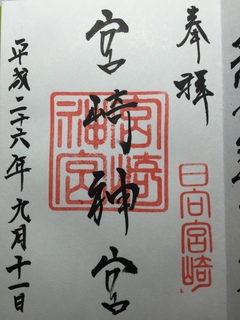 奉拝
日向宮崎
宮崎神宮
宮崎神宮
平成二十六年九月十一日